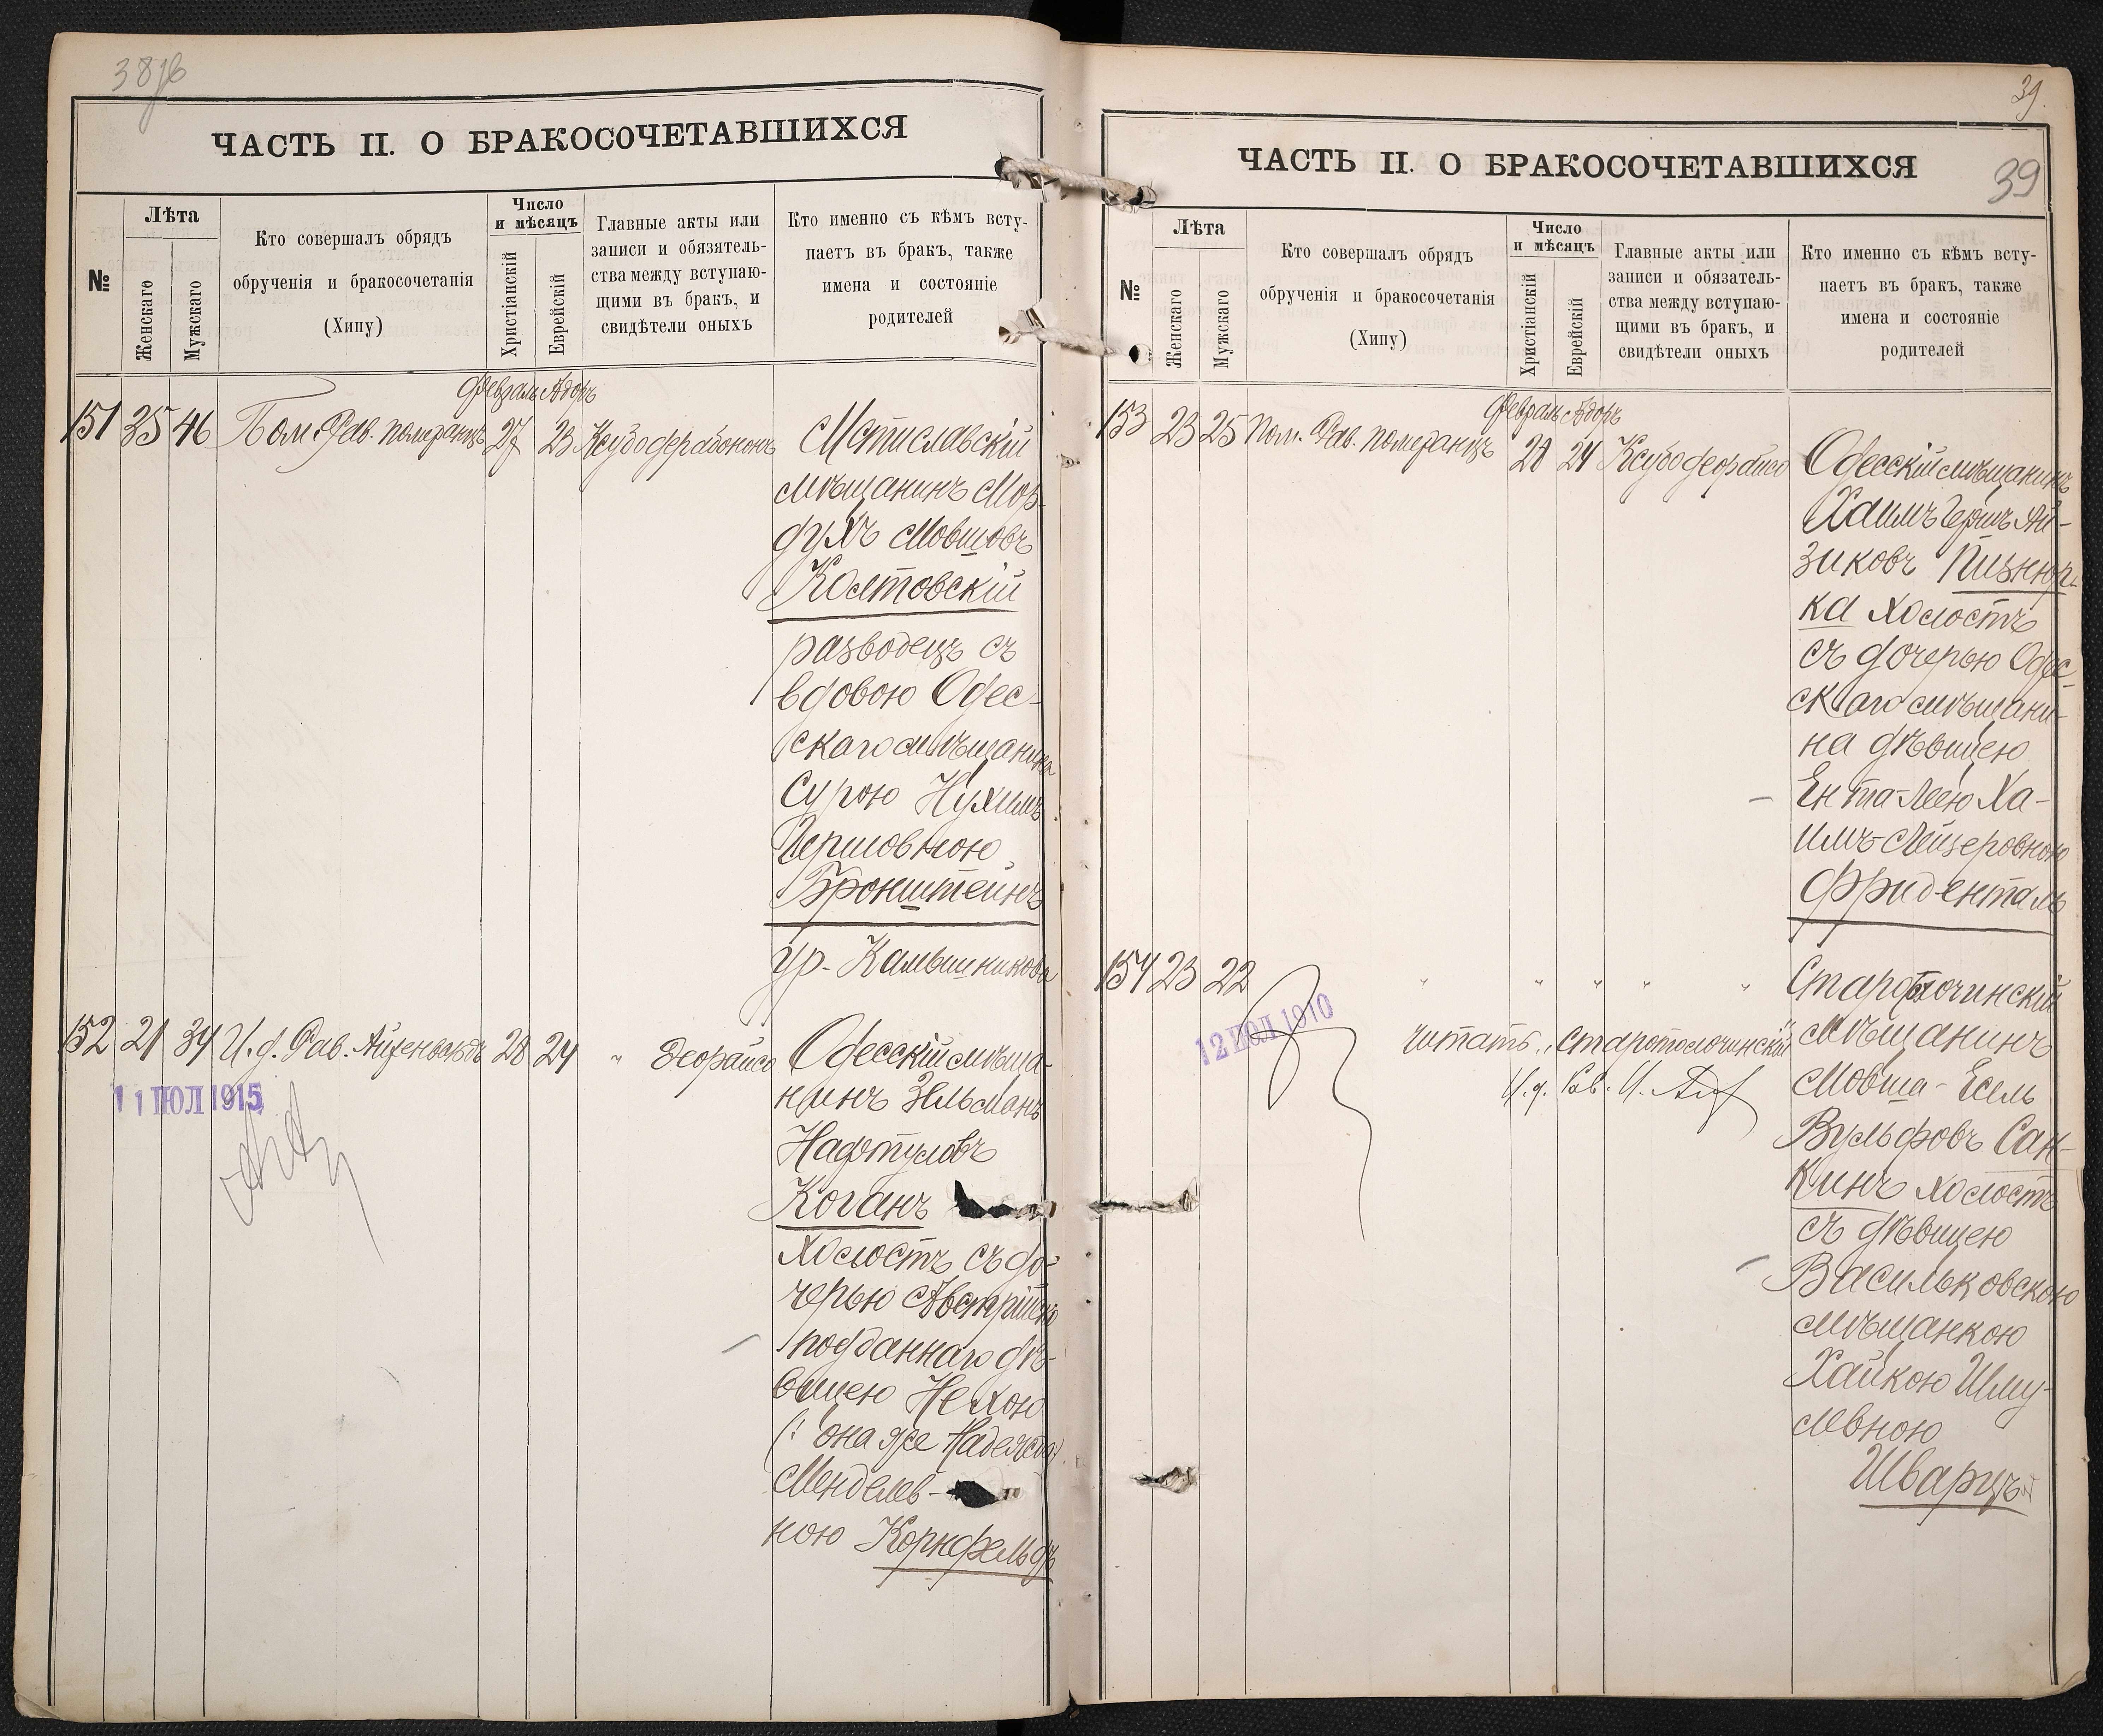 38
ЧАСТЬ II. О БРАКОСОЧЕТАВШИХСЯ
№
Лѣта
Женскаго
Мужскаго
Кто совершалъ обрядъ
обрученія и бракосочетанія
(Хипу)
Число
и мѣсяцъ
Христіанскій
Еврейскій
Главные акты или
записи и обязятель-
ства между вступаю-
щими въ бракъ, и
свидѣтели оныхъ
Кто именно съ кѣмъ всту-
паетъ въ бракъ, также
имена и состояніе
родителей
Февраль Адоръ
151 35 46 Пом. Рав. Померанцъ 27 23
Мстиславскій
мѣщанинъ Мор-
духъ Мовшовъ
Колтовскій
разводецъ съ
вдовою Одес-
скаго мѣщанина
Сурою Нухимъ
Гершовною
Бронштейнъ
ур. Камышникова
152 21 34 И. д. Рав. Айзенвальдъ 28 24 " Деорайсо
11 ІЮЛ 1915
Одесскій мѣща-
нинъ Зельманъ
Нафтуловъ
Коганъ
холостъ съ до-
черью Австрійско
подданнаго дѣ-
вицею Нехою
(: она же Надежда)
Менделев-
ною Корнфельдъ
39.
39
ЧАСТЬ II. О БРАКОСОЧЕТАВШИХСЯ
№
Лѣта
Женскаго
Мужскаго
Кто совершалъ обрядъ
обрученія и бракосочетанія
(Хипу)
Число
и мѣсяцъ
Христіанскій
Еврейскій
Главные акты или
записи и обязатель-
ства между вступаю-
щими въ бракъ, и
свидѣтели оныхъ
Кто именно съ кѣмъ всту-
паетъ въ бракъ, также
имена и состояніе
родителей
Февраль Адоръ
153 23 25 Пом. Рав. Померанцъ 28 24 Ксубо деорайсо
Одесскій мѣщанинъ
Хаимъ Гершъ Ай-
зиковъ Пизнюр-
ка холостъ
съ дочерью Одес-
скаго мѣщани-
на дѣвицею
Ента-Леею Ха-
имъ-Лейзеровною
Фриденталь
154 23 22 " " " " "
12 ІЮЛ 1910
читать: "Старотолочинскій"
И. д. Рав. И.
Старотолочинскій
мѣщанинъ
Мовша-Есель
Вульфовъ Сан-
кинъ холостъ
съ дѣвицею
Васильковскою
мѣщанкою
Хайкою Шму-
левною
Шварцъ